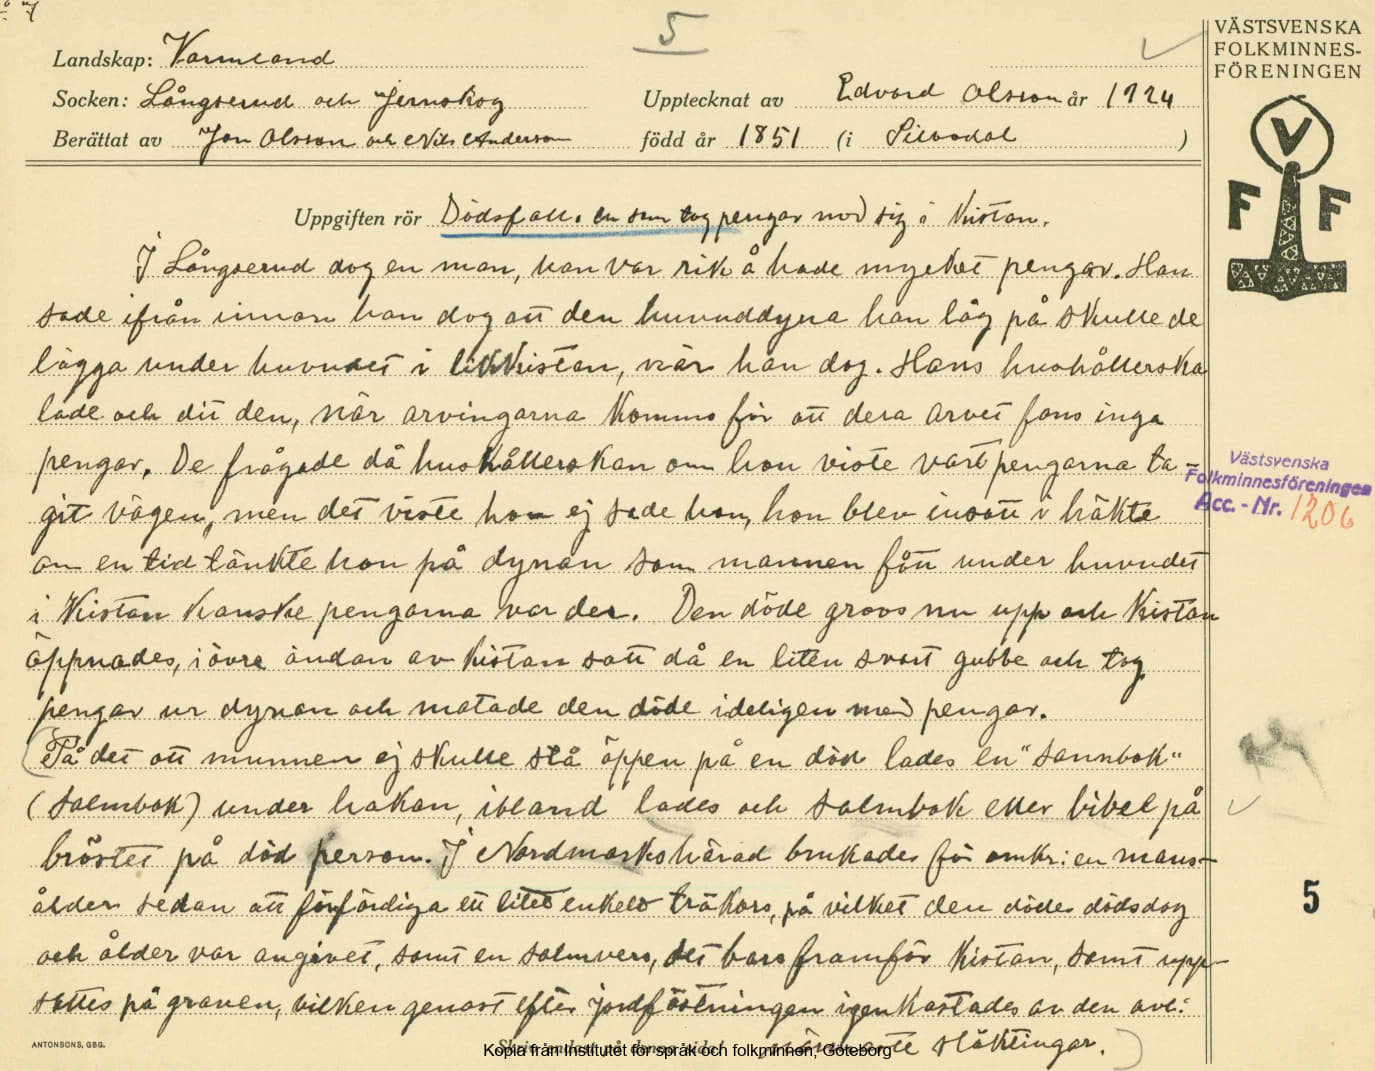 5
Landskap: Värmland
Socken: Långserud och Jernskog
Upptecknat av Edvard Olsson år 1924
Berättat av Jon Olsson och Nils Anderson
född år 1851 (i Silbodal )
VÄSTSVENSKA
FOLKMINNES-
FÖRENINGEN
V
F F
Uppgiften rör Dödsfall. en som tog pengar med sig i Kistan.
I Långserud dog en man, han var rik å hade mycket pengar. Han
sade ifrån innan han dog att den huvuddyna han låg på skulle de
lägga under huvudet i likkistan, när han dog. Hans hushållerska
lade och dit den, när arvingarna Kommo för att dela arvet fans inga
pengar. De frågade då hushållerskan om hon viste vart pengarna ta-
git vägen, men det viste hon ej sade hon, hon blev insatt i häkte
om en tid tänkte hon på dynan som mannen fått under huvudet
i Kistan kanske pengarna var der. Den döde grovs nu upp och Kistan
öppnades, i övre ändan av kistan satt då en liten svart gubbe och tog
pengar ur dynan och matade den döde ideligen med pengar.
(På det att munnen ej skulle stå öppen på en död lades en "sannbok"
(salmbok) under hakan, ibland lades och salmbok eller bibel på
bröstet på död person. I Nordmarks härad brukades för omkr: en mans-
ålder sedan att förfärdiga ett litet enkelt träkors, på vilket den dödes dödsdag
och ålder var angivet, samt en salmvers, det bars framför Kistan, samt upp-
sattes på graven, vilken genast efter jordfästningen igenkastades av den avl:
närmaste släktingar.)
Västsvenska
Folkminnesföreningen
Acc. - Nr. 1206
5
ANTONSONS, GBG.
Skriv endast på denna sida!
Kopia från Institutet för språk och folkminnen, Göteborg